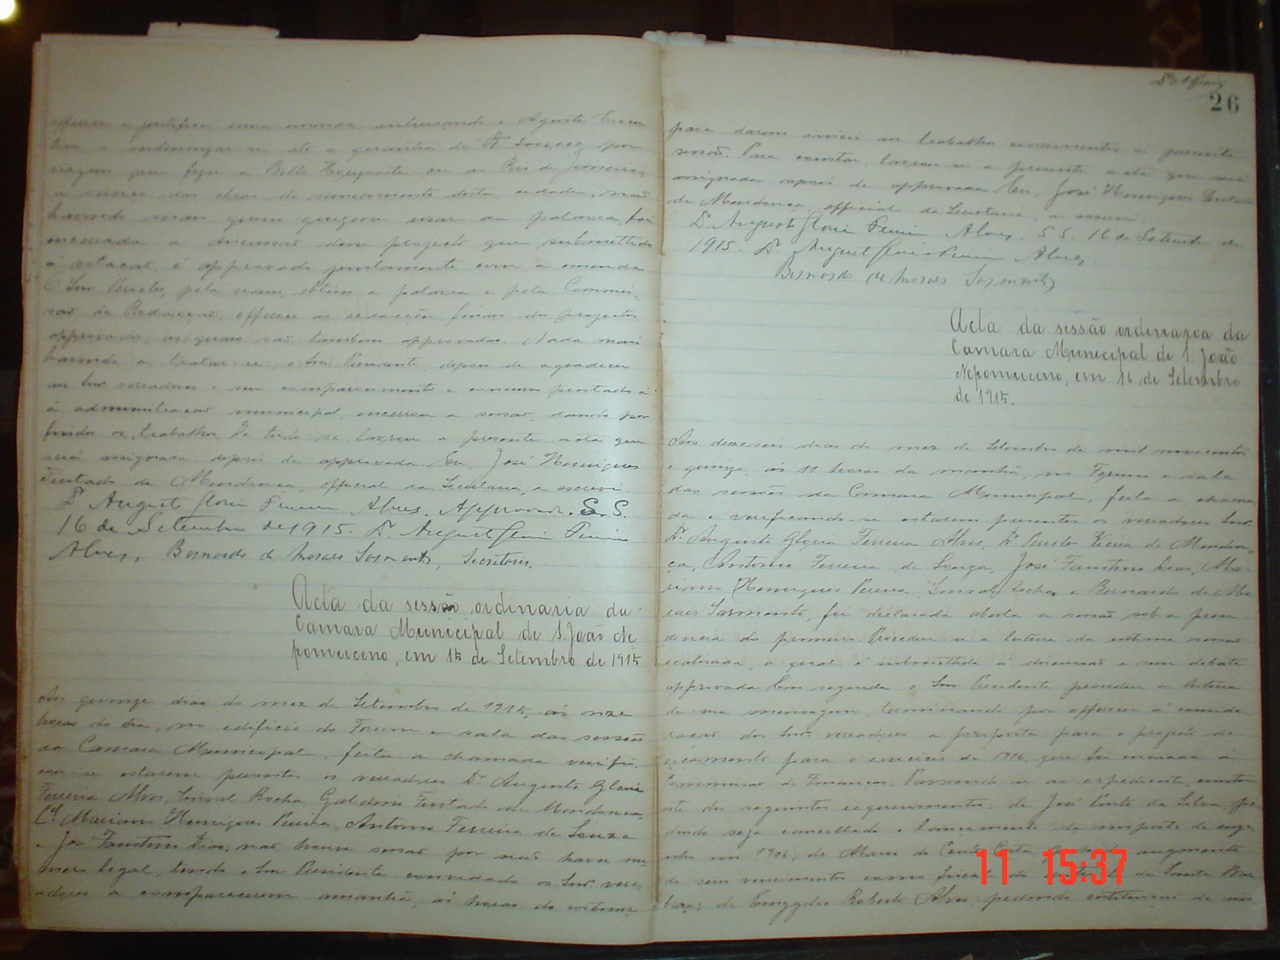 offerece e justifica uma emenda autorisando o Agente Execu
tivo a indemnizar-se até a quantia de
viagem que fizer a Bello Horizonte ou ao Rio de Janeiro,
a serviço das obras de saneamento desta cidade, não
havendo mais quem quizesse usar da palavra foi
encerrada a discussão desse projecto que, submettido
á votação, é approvado juntamente com a emenda.
O Snr. Percles, pela ordem, obtem a palavra e pela Commis-
são de Redacção, offerece as redacções finaes dos projectos
approvados, as quaes são tambem approvadas. Nada mais
havendo a tratar-se, o Snr. Presidente, depois de agradecer
aos Snrs. vereadores o seu comparecimento e concurso prestado á
á administração municipal, encerrou a sessão, dando por
findos os trabalhos. De tudo se lavrou a presente acta que
será assignada depois de approvada. Eu, José Henriques
Furtado de Mendonça, official da Secretaria, a escrevi.
Dr. Augusto Gloria Ferreira Alves. Approvada. S. S.
16 de Setembro de 1915. Dr. Augusto Gloria Ferreira
Alves, Bernardo de Moraes Sarmento, Secretario.
Acta da sessão ordinaria da
Camara Municipal de S. João Ne
pomuceno, em 15 de Setembro de 1915
Aos quinze dias do mez de Setembro de 1915, ás onze
horas do dia, no edificio do Forum e sala das sessões
da Camara Municipal, feita a chamada verifi
cou-se estarem presentes os vereadores Dr. Augusto Gloria
Ferreira Alves, Sinval Rocha, Galdino Furtado de Mendonça,
Cel. Mariano Henriques Pereira, Antonio Ferreira de Souza
e José Faustino Dias, não houve sessão por não haver nu
mero legal, tendo o Snr. Presidente convidado os Snrs. vere
adores a comparecerem amanhã, ás horas do costume,
26
para darem inicio aos trabalhos concernentes á presente
sessão. Para constar, lavrou-se a presente acta que será
assignada depois de approvada. Eu, José Henriques Furtado
de Mendonça, official da Secretaria, a escrevi.
Dr. Augusto Gloria Ferreira Alves. S. S. 16 de Setembro de
1915. Dr. Augusto Gloria Ferreira Alves.
Bernardo de Moraes Sarmento
Acta da sessão ordinaria da
Camara Municipal de S. João
Nepomuceno, em 16 de Setembro
de 1915.
Aos dezeseis dias do mez de Setembro de mil novecentos
e quinze ás 11 horas da manhã, no Forum e sala
das sessões da Camara Municipal, feita a chama
da e verificando-se estarem presentes os vereadores Snrs.
Dr. Augusto Gloria Ferreira Alves, Dr. Percles Vieira de Mendon-
ça, Antonio Ferreira de Souza, José Faustino Dias, Ma-
riano Henriques Pereira, Sinval Rocha e Bernardo de Mo
raes Sarmento, foi declarada aberta a sessão sob a presi
dencia do primeiro. Procedeu-se a leitura da ultima sessão
realisada, a qual é submettida á discussão e sem debate
approvada. Em seguida o Snr. Presidente procedeu a leitura
de sua mensagem, terminando por offerecer á conside
ração dos Snrs. vereadores a proposta para o projecto de
orçamento para o exercicio de 1916, que foi enviada á
Commissão de Finanças. Passando-se ao expediente, consta
este dos seguintes requerimentos: de José Pinto da Silva, pe
dindo seja cancellado o lançamento do imposto de enge
nho em 1906; de augmento
de seus vencimentos como fiscal do districto de Santa Bar
bara; de Emygdio Roberto Alves, pedindo restituição de
11 15:37